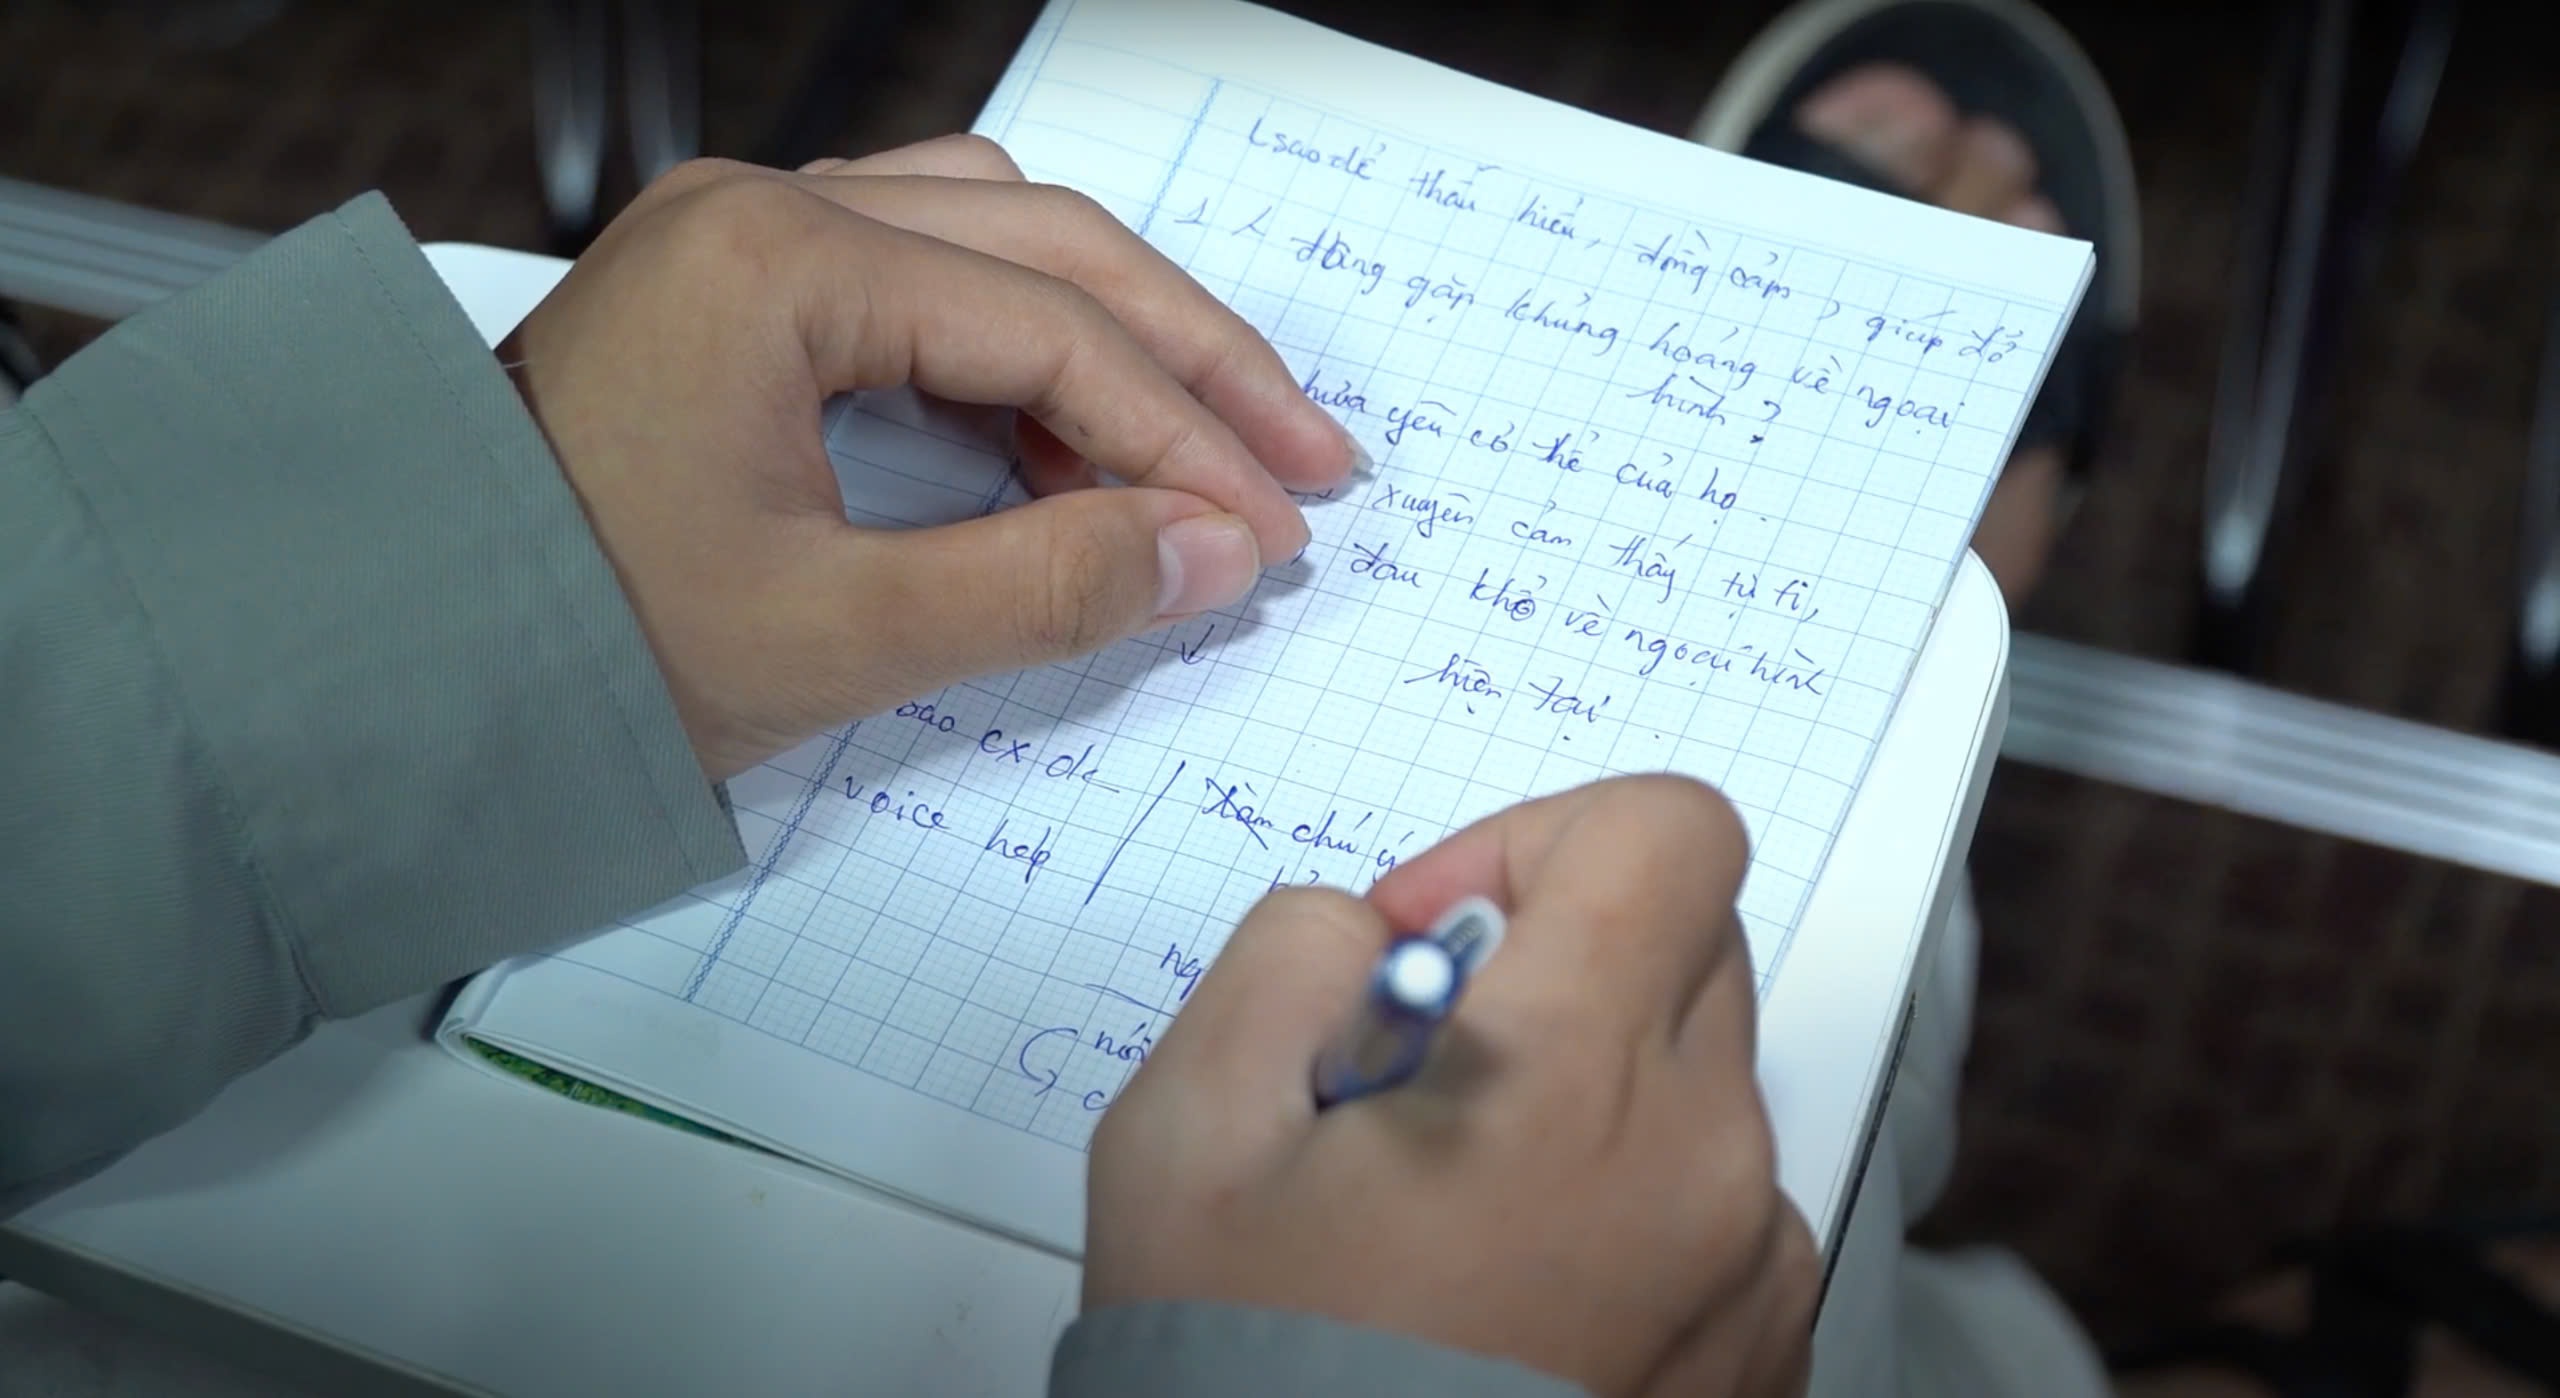 Lsao để thấu hiểu, đồng cảm, giúp đỡ
1 đang gặp khủng hoảng về ngoại
hình?
yêu cơ thể của họ.
xuyên cảm thấy tự ti,
đau khổ về ngoại hình
hiện tại.
sao cx ok
voice help
chú ý
nói